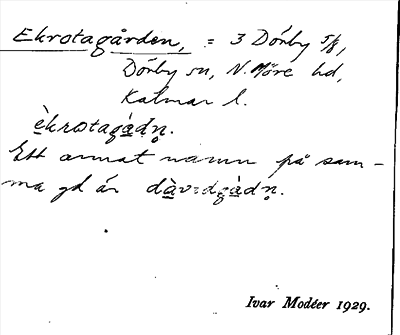 Ekrotagården, = 3 Dörby 5/8,
Dörby sn, N. Möre hd,
Kalmar l.
èkrotagá̱dn̥.
Ett annat namn på sam-
ma gd är dà̱vidgá̱dn̥.
Ivar Modéer 1929.